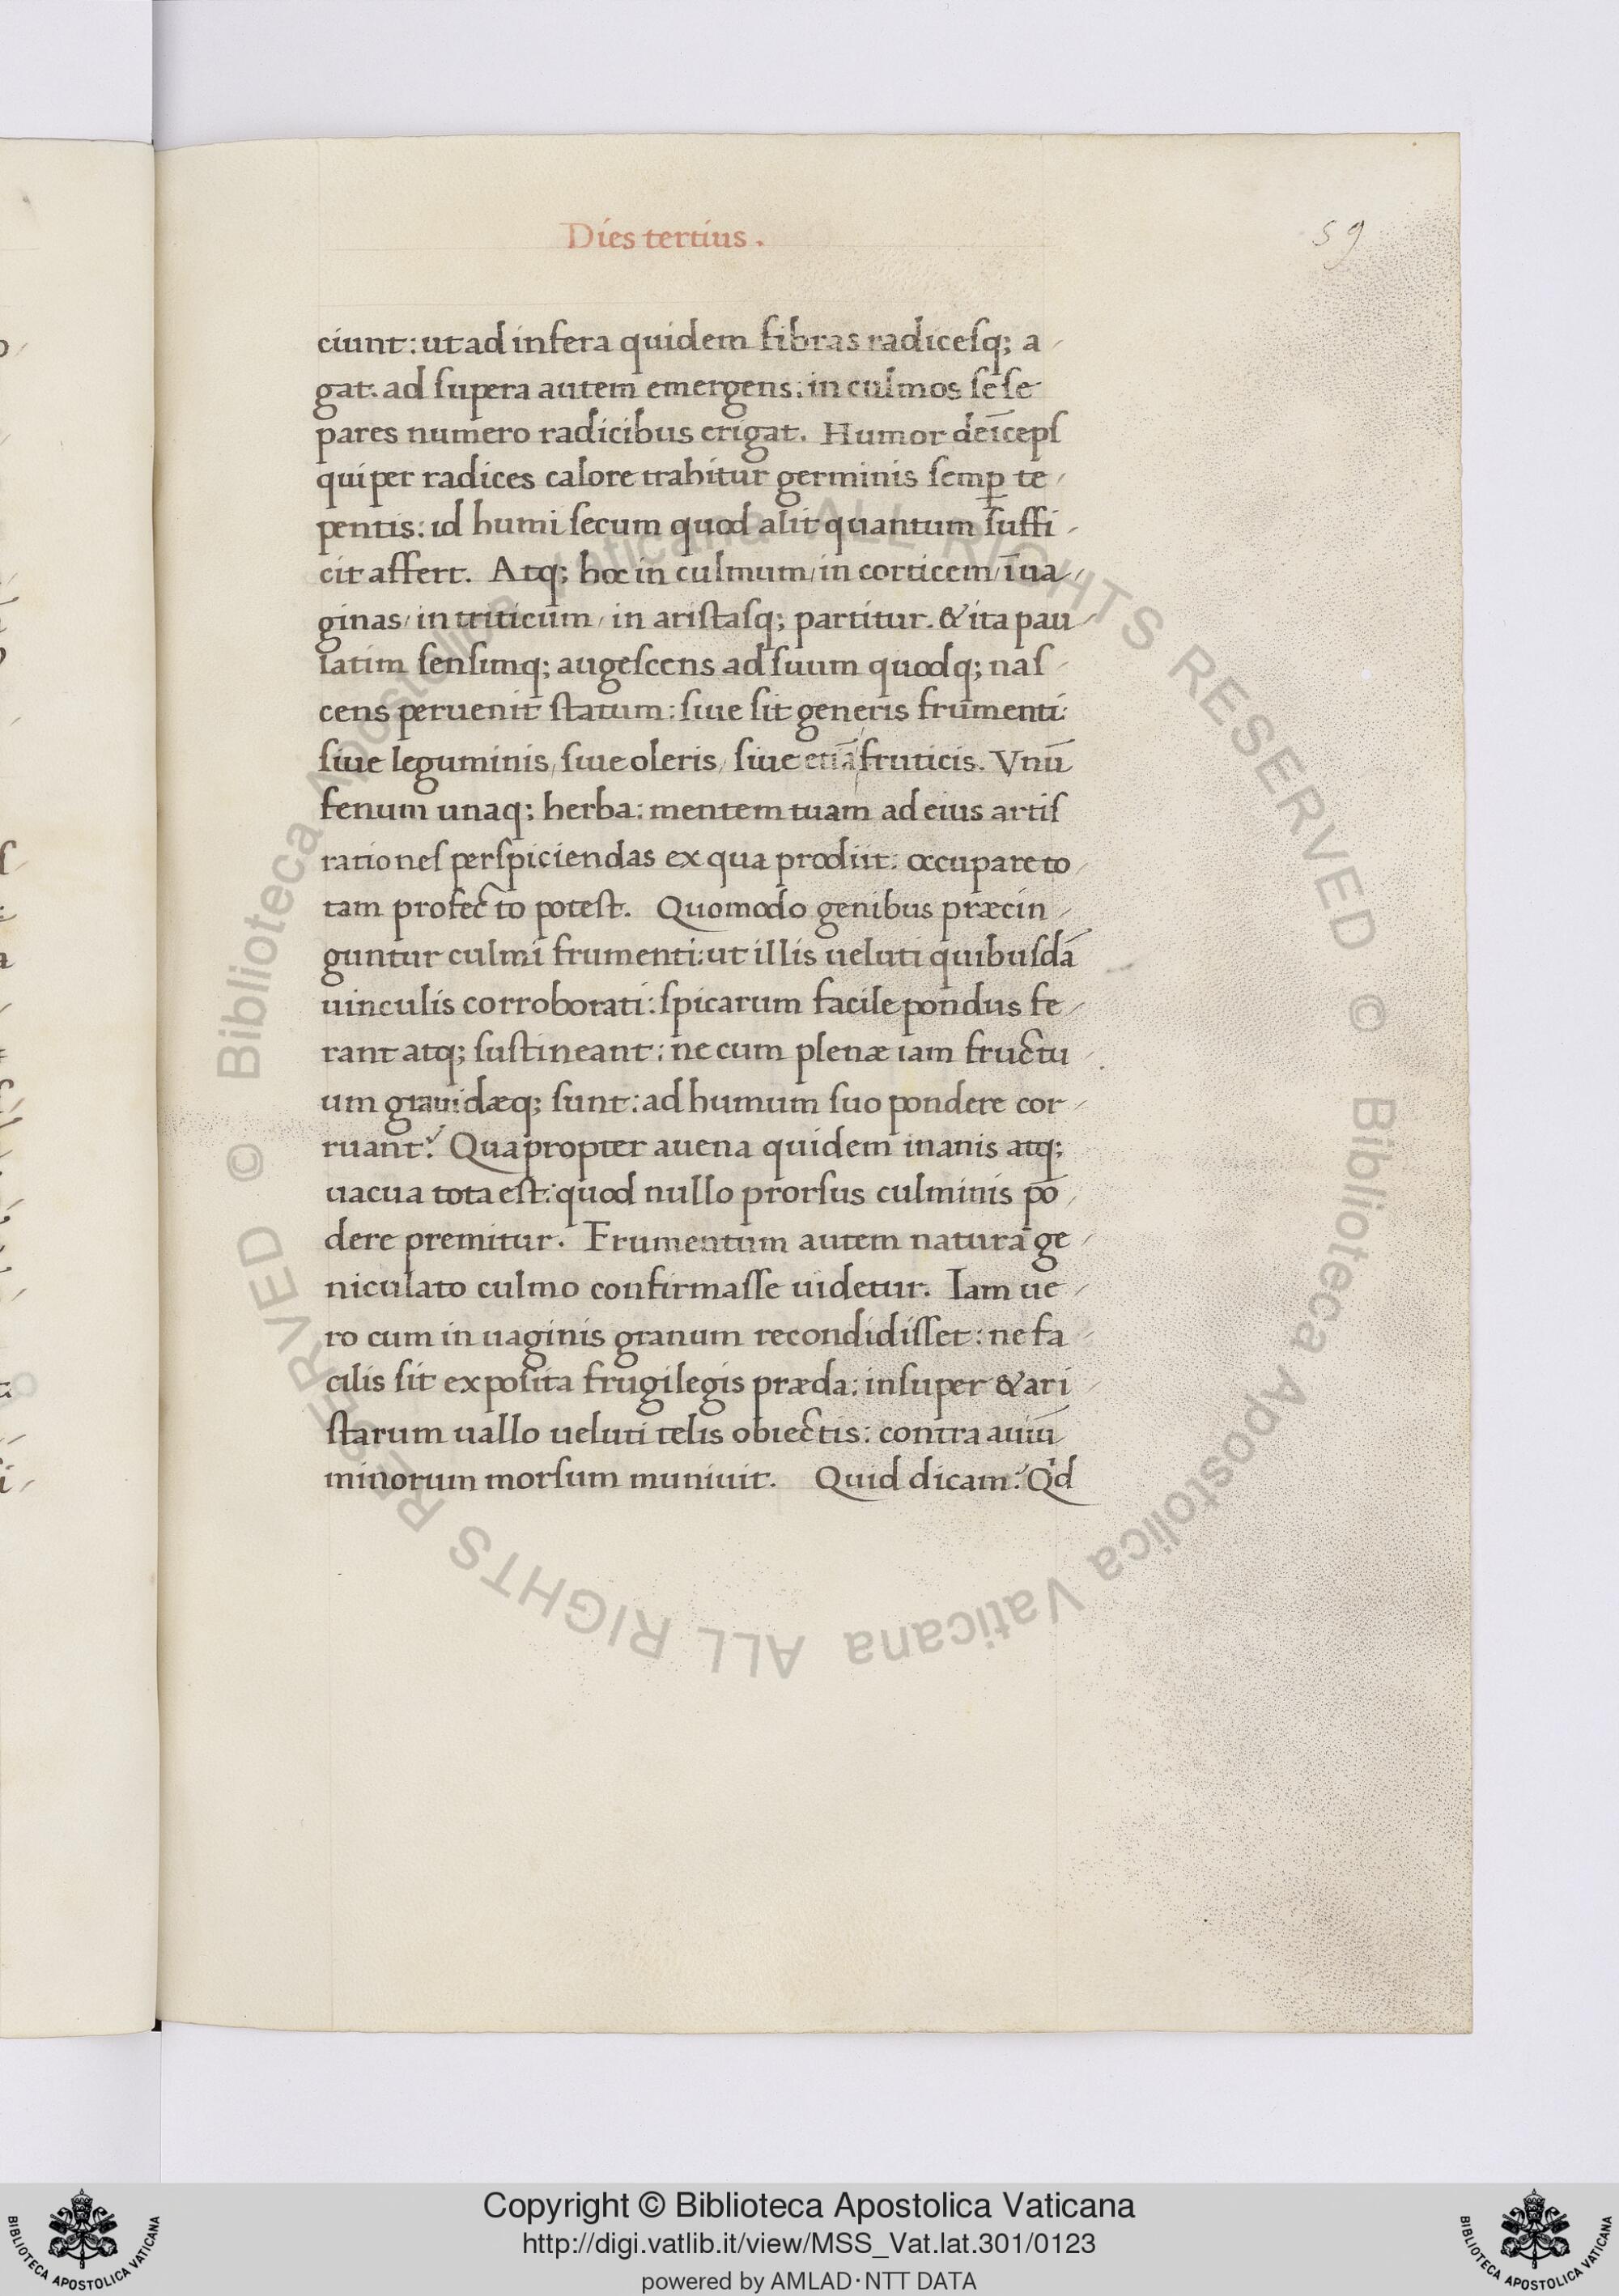 Dies tertius.
59
ciunt: ut ad infera quidem fibras radicesq; a
gat: ad supera autem emergens: in culmos sese
pares numero radicibus erigat. Humor deīceps
qui per radices calore trahitur germinis semꝑ te
pentis: id humi secum quod alit quantum suffi
cit affert. Atq; hoc in culmum/ in corticem/ ī ua
ginas/ in triticum/ in aristasq; partitur. & ita pau
latim sensimq; augescens ad suum quodq; nas
cens peruenit statum: siue sit generis frumenti:
siue leguminis/ siue oleris/ siue etiā fruticis. Vnū
fenum unaq; herba: mentem tuam ad eius artis
rationes perspiciendas ex qua prodiit: occupare to
tam profecto potest. Quomodo genibus præcin
guntur culmi frumenti: ut illis ueluti quibusdā
uinculis corroborati: spicarum facile pondus fe
rant atq; sustineant: ne cum plenæ iam fructu
um grauidæq; sunt: ad humum suo pondere cor
ruant? Quapropter auena quidem inanis atq;
uacua tota est: quod nullo prorsus culminis pō
dere premitur. Frumentum autem natura ge
niculato culmo confirmasse uidetur. Iam ue
ro cum in uaginis granum recondidisset: ne fa
cilis sit exposita frugilegis præda: insuper & ari
starum uallo ueluti telis obiectis: contra auiū
minorum morsum muniuit. Quid dicam? Qd
© Biblioteca Apostolica Vaticana ALL RIGHTS RESERVED
© Biblioteca Apostolica Vaticana ALL RIGHTS RESERVED
Copyright © Biblioteca Apostolica Vaticana
http://digi.vatlib.it/view/MSS_Vat.lat.301/0123
powered by AMLAD·NTT DATA
BIBLIOTECA APOSTOLICA VATICANA
BIBLIOTECA APOSTOLICA VATICANA